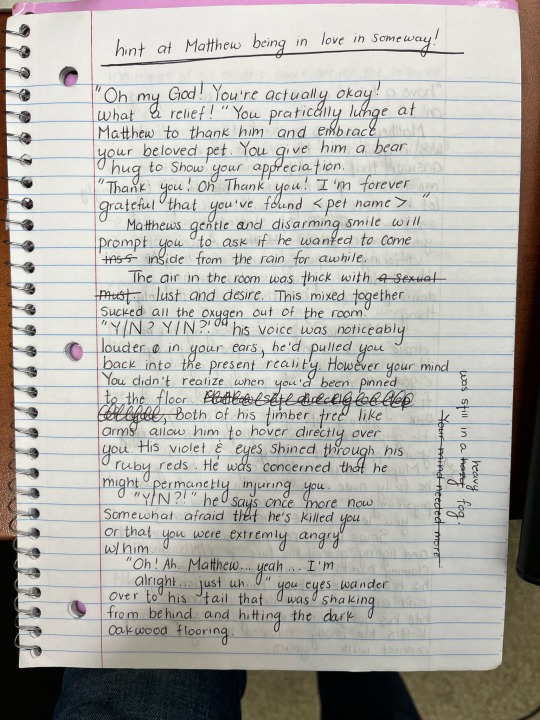 hint at Matthew being in love in someway!
"Oh my God! You're actually okay!
what a relief!" You pratically lunge at
Matthew to thank him and embrace
your beloved pet. You give him a bear
hug to show your appreciation.
"Thank you! Oh Thank you! I'm forever
grateful that you've found <pet name> "
Matthews gentle and disarming smile will
prompt you to ask if he wanted to come
inside from the rain for awhile.
The air in the room was thick with a sexual
must. lust and desire. This mixed together
sucked all the oxygen out of the room.
"Y/N? Y/N?!" his voice was noticeably
louder in your ears, he'd pulled you
back into the present reality. However your mind
was still in a heavy fog
Your mind needed more
You didn't realize when you'd been pinned
to the floor.
Both of his timber tree like
arms allow him to hover directly over
you. His violet & eyes shined through his
ruby reds. He was concerned that he
might permanetly injuring you.
"Y/N?!" he says once more now
Somewhat afraid that he's killed you
or that you were extremly angry
w/him
"Oh! Ah Matthew... yeah... I'm
alright... just uh " you eyes wander
over to his tail that was shaking
from behind and hitting the dark
oakwood flooring.